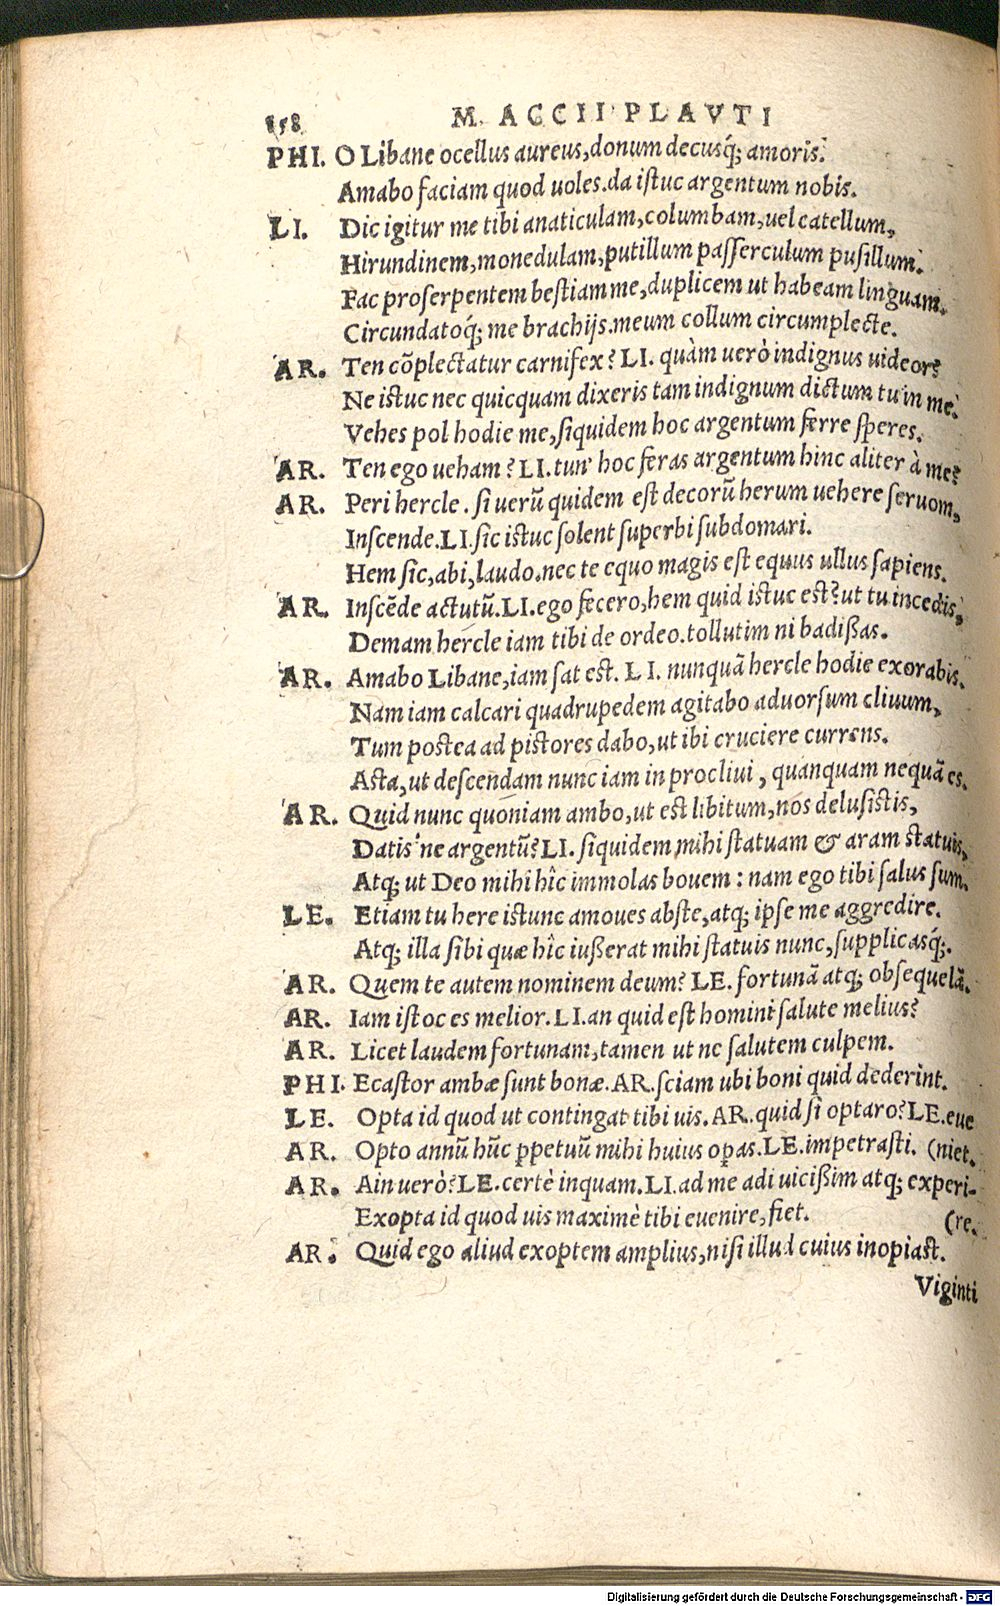 158 M. ACCII PLAVTI
PHI. O Libane ocellus aureus, donum decusq́; amoris.
Amabo faciam quod uoles. da istuc argentum nobis.
LI. Dic igitur me tibi anaticulam, columbam, uel catellum,
Hirundinem, monedulam, putillum passerculum pusillum.
Fac proserpentem bestiam me, duplicem ut habeam linguam.
Circundatoq́; me brachijs. meum collum circumplecte.
AR. Ten cōplectatur carnifex? LI. quàm uerò indignus uideor?
Ne istuc nec quicquam dixeris tam indignum dictum tu in me.
Vehes pol hodie me, siquidem hoc argentum ferre speres.
AR. Ten ego ueham? LI. tun' hoc feras argentum hinc aliter à me?
AR. Peri hercle. si uerū quidem est decorū herum uehere seruom,
Inscende. LI. sic istuc solent superbi subdomari.
Hem sic, abi, laudo. nec te equo magis est equus ullus sapiens.
AR. Inscēde actutū. LI. ego fecero, hem quid istuc est? ut tu incedis,
Demam hercle iam tibi de ordeo. tollutim ni badißas.
AR. Amabo Libane, iam sat est. LI. nunquā hercle hodie exorabis.
Nam iam calcari quadrupedem agitabo aduorsum cliuum,
Tum postea ad pistores dabo, ut ibi cruciere currens.
Asta, ut descendam nunc iam in procliui, quanquam nequā es.
AR. Quid nunc quoniam ambo, ut est libitum, nos delusistis,
Datis'ne argentū? LI. siquidem mihi statuam & aram statuis,
Atq; ut Deo mihi hîc immolas bouem: nam ego tibi salus sum.
LE. Etiam tu here istunc amoues abste, atq; ipse me aggredire.
Atq; illa sibi quæ hîc iußerat mihi statuis nunc, supplicasq́;.
AR. Quem te autem nominem deum? LE. fortunā atq; obsequelā.
AR. Iam istoc es melior. LI. an quid est homini salute melius?
AR. Licet laudem fortunam, tamen ut ne salutem culpem.
PHI. Ecastor ambæ sunt bonæ. AR. sciam ubi boni quid dederint.
LE. Opta id quod ut contingat tibi uis. AR. quid si optaro? LE. eue
AR. Opto annū hūc ꝑpetuū mihi huius oꝑas. LE. impetrasti. (niet.
AR. Ain uerò? LE. certè inquam. LI. ad me adi uicißim atq; experi-
Exopta id quod uis maximè tibi euenire, fiet. (re.
AR. Quid ego aliud exoptem amplius, nisi illud cuius inopiast.
Viginti
Digitalisierung gefördert durch die Deutsche Forschungsgemeinschaft - DFG